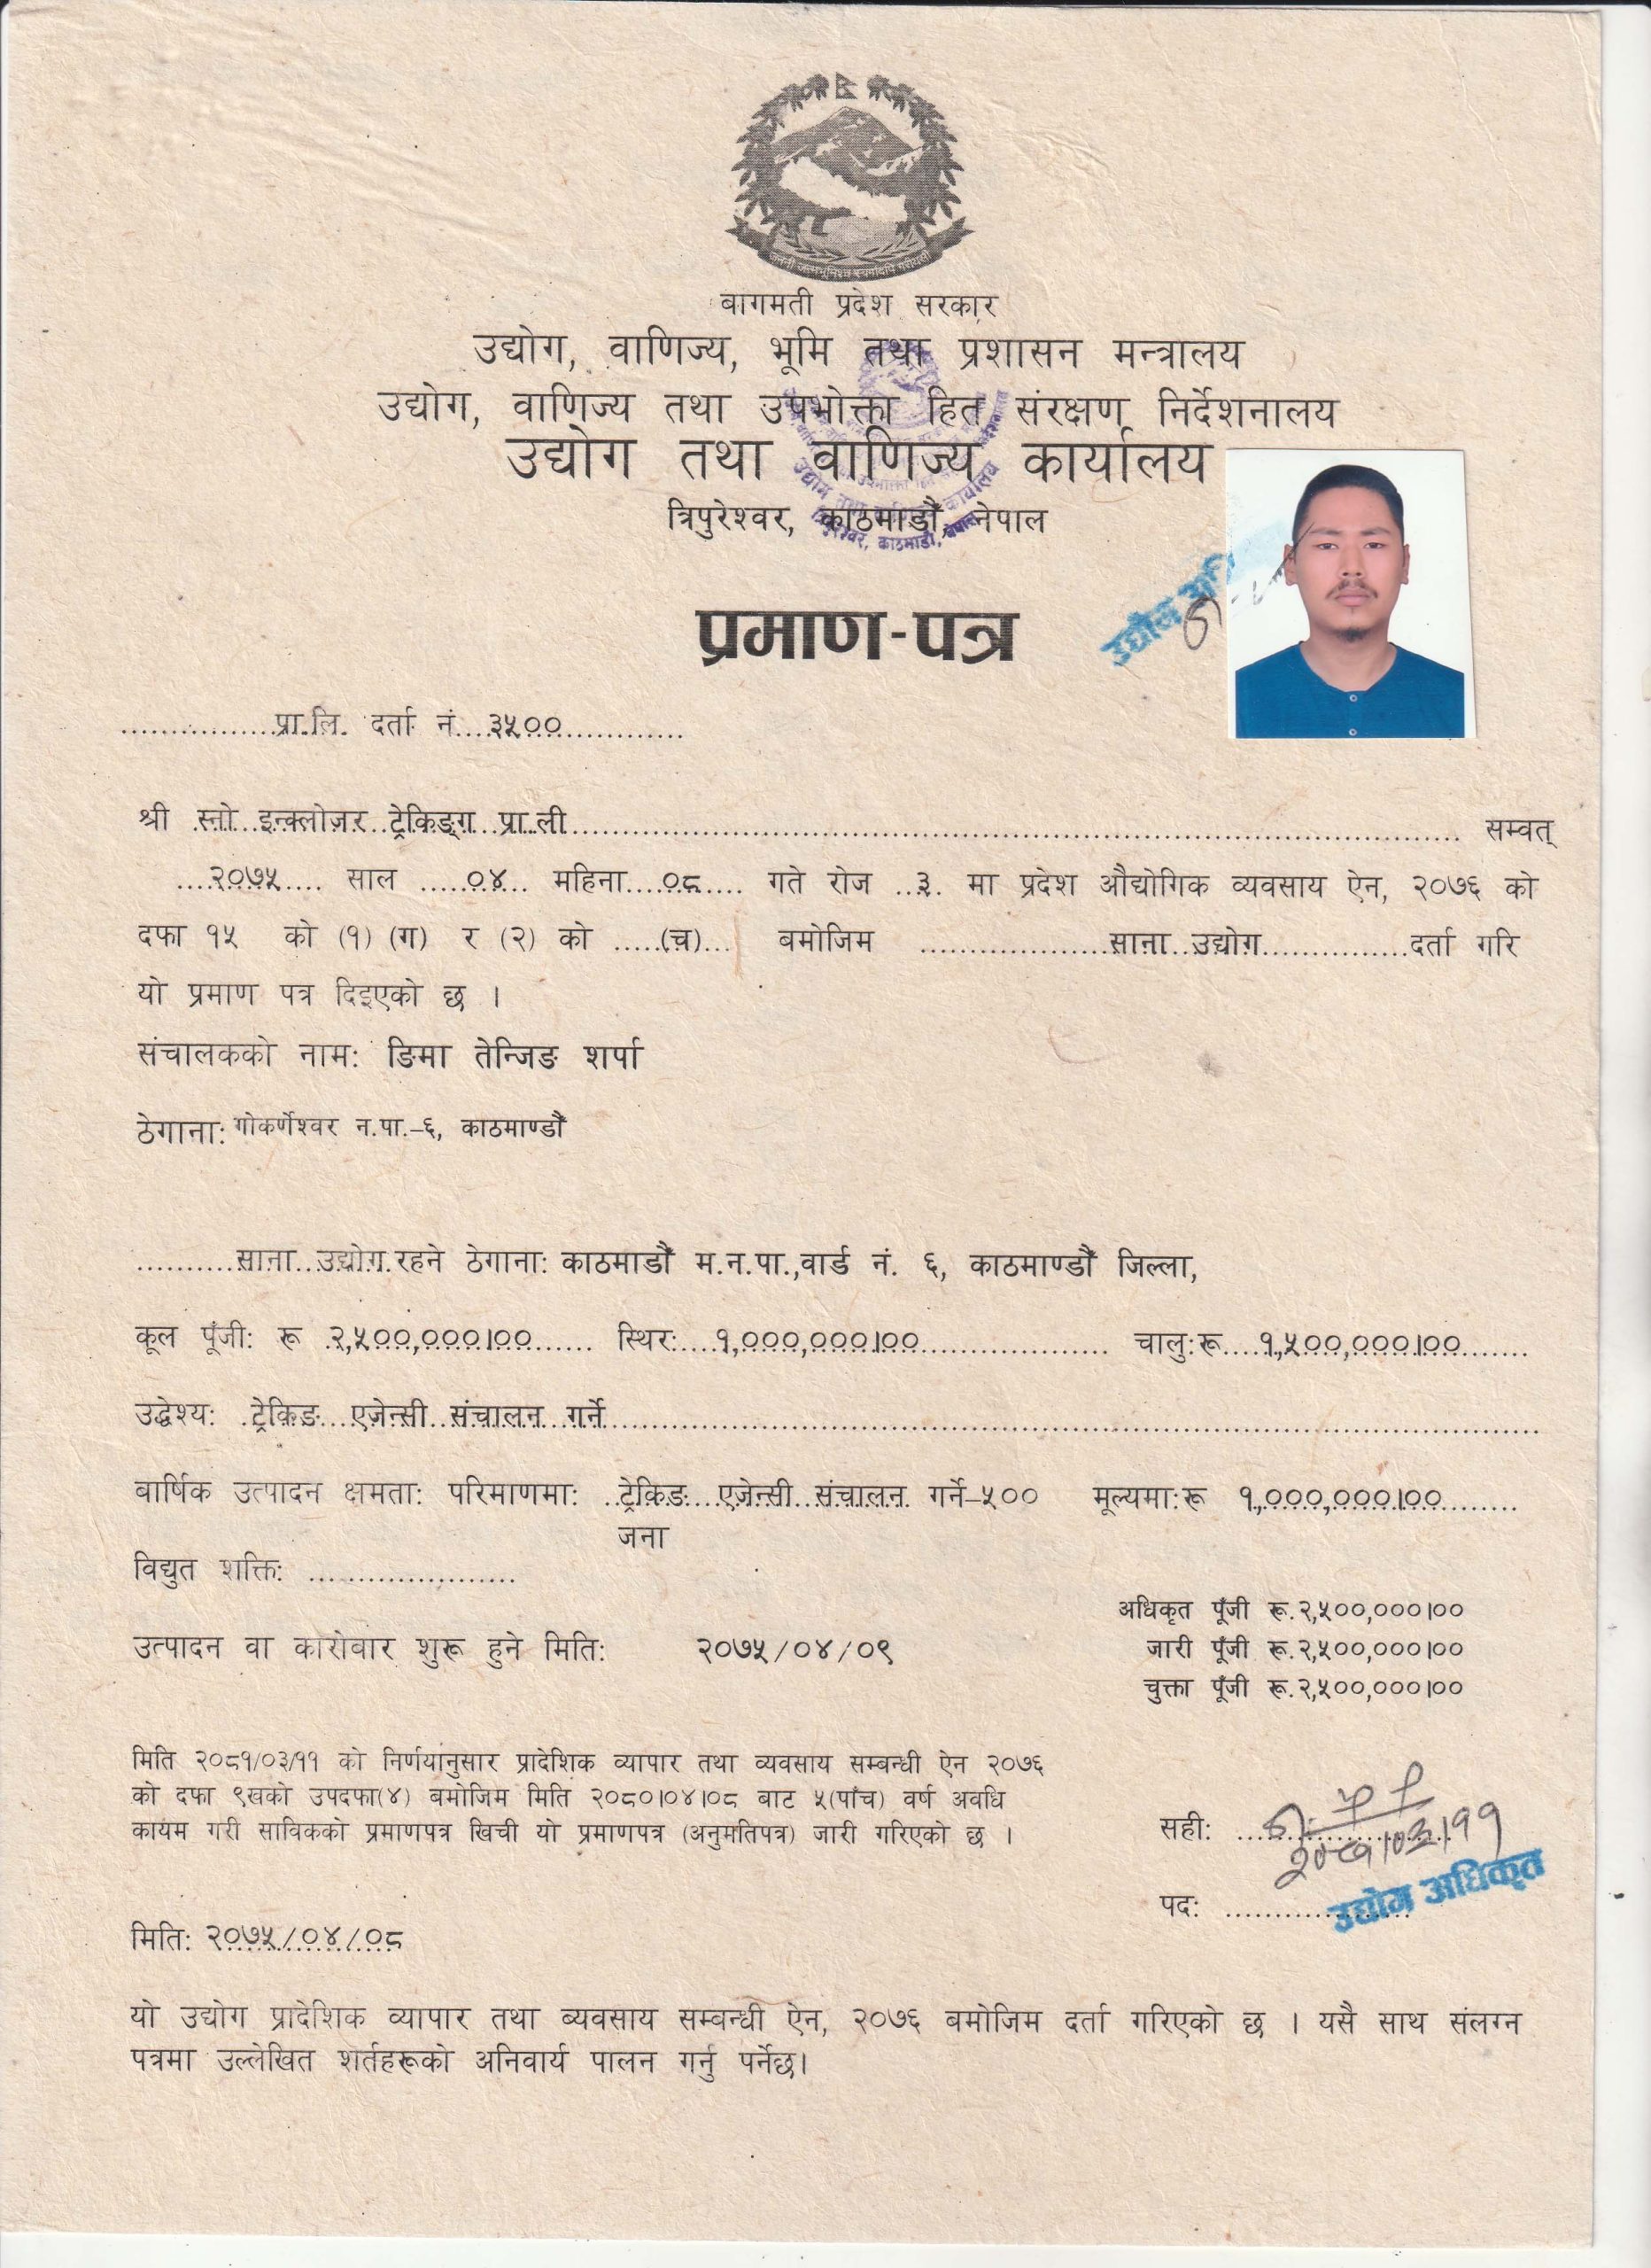 जननी जन्मभूमिश्च स्वर्गादपि गरीयसी
बागमती प्रदेश सरकार
उद्योग, वाणिज्य, भूमि तथा प्रशासन मन्त्रालय
उद्योग, वाणिज्य तथा उपभोक्ता हित संरक्षण निर्देशनालय
उद्योग तथा वाणिज्य कार्यालय
त्रिपुरेश्वर, काठमाडौं, नेपाल
प्रमाण-पत्र
प्रा.लि. दर्ता नं. ३५००
श्री स्नो इन्क्लोजर ट्रेकिङ्ग प्रा.ली. सम्वत्
२०७५ साल ०४ महिना ०८ गते रोज ३. मा प्रदेश औद्योगिक व्यवसाय ऐन, २०७६ को
दफा १५ को (१) (ग) र (२) को (च) बमोजिम साना उद्योग दर्ता गरि
यो प्रमाण पत्र दिइएको छ ।
संचालकको नाम: ङिमा तेन्जिङ शर्पा
ठेगाना: गोकर्णेश्वर न.पा.–६, काठमाण्डौं
साना उद्योग रहने ठेगाना: काठमाडौं म.न.पा.,वार्ड नं. ६, काठमाण्डौं जिल्ला,
कूल पूँजी: रू २,५००,०००।०० स्थिर: १,०००,०००।०० चालु: रू १,५००,०००।००
उद्धेश्य: ट्रेकिङ एजेन्सी संचालन गर्ने
वार्षिक उत्पादन क्षमता: परिमाणमा: ट्रेकिङ एजेन्सी संचालन गर्ने–५०० मूल्यमा: रू १,०००,०००।००
जना
विद्युत शक्ति:
अधिकृत पूँजी रू.२,५००,०००।००
उत्पादन वा कारोवार शुरू हुने मिति: २०७५/०४/०९ जारी पूँजी रू.२,५००,०००।००
चुक्ता पूँजी रू.२,५००,०००।००
मिति २०८१/०३/११ को निर्णयानुसार प्रादेशिक व्यापार तथा व्यवसाय सम्बन्धी ऐन २०७६
को दफा ९खको उपदफा(४) बमोजिम मिति २०८०।०४।०८ बाट ५(पांच) वर्ष अवधि
कायम गरी साविकको प्रमाणपत्र खिची यो प्रमाणपत्र (अनुमतिपत्र) जारी गरिएको छ ।
सही: २०८१।०३।११
पद: उद्योग अधिकृत
मिति: २०७५/०४/०८
यो उद्योग प्रादेशिक व्यापार तथा ब्यवसाय सम्बन्धी ऐन, २०७६ बमोजिम दर्ता गरिएको छ । यसै साथ संलग्न
पत्रमा उल्लेखित शर्तहरूको अनिवार्य पालन गर्नु पर्नेछ।